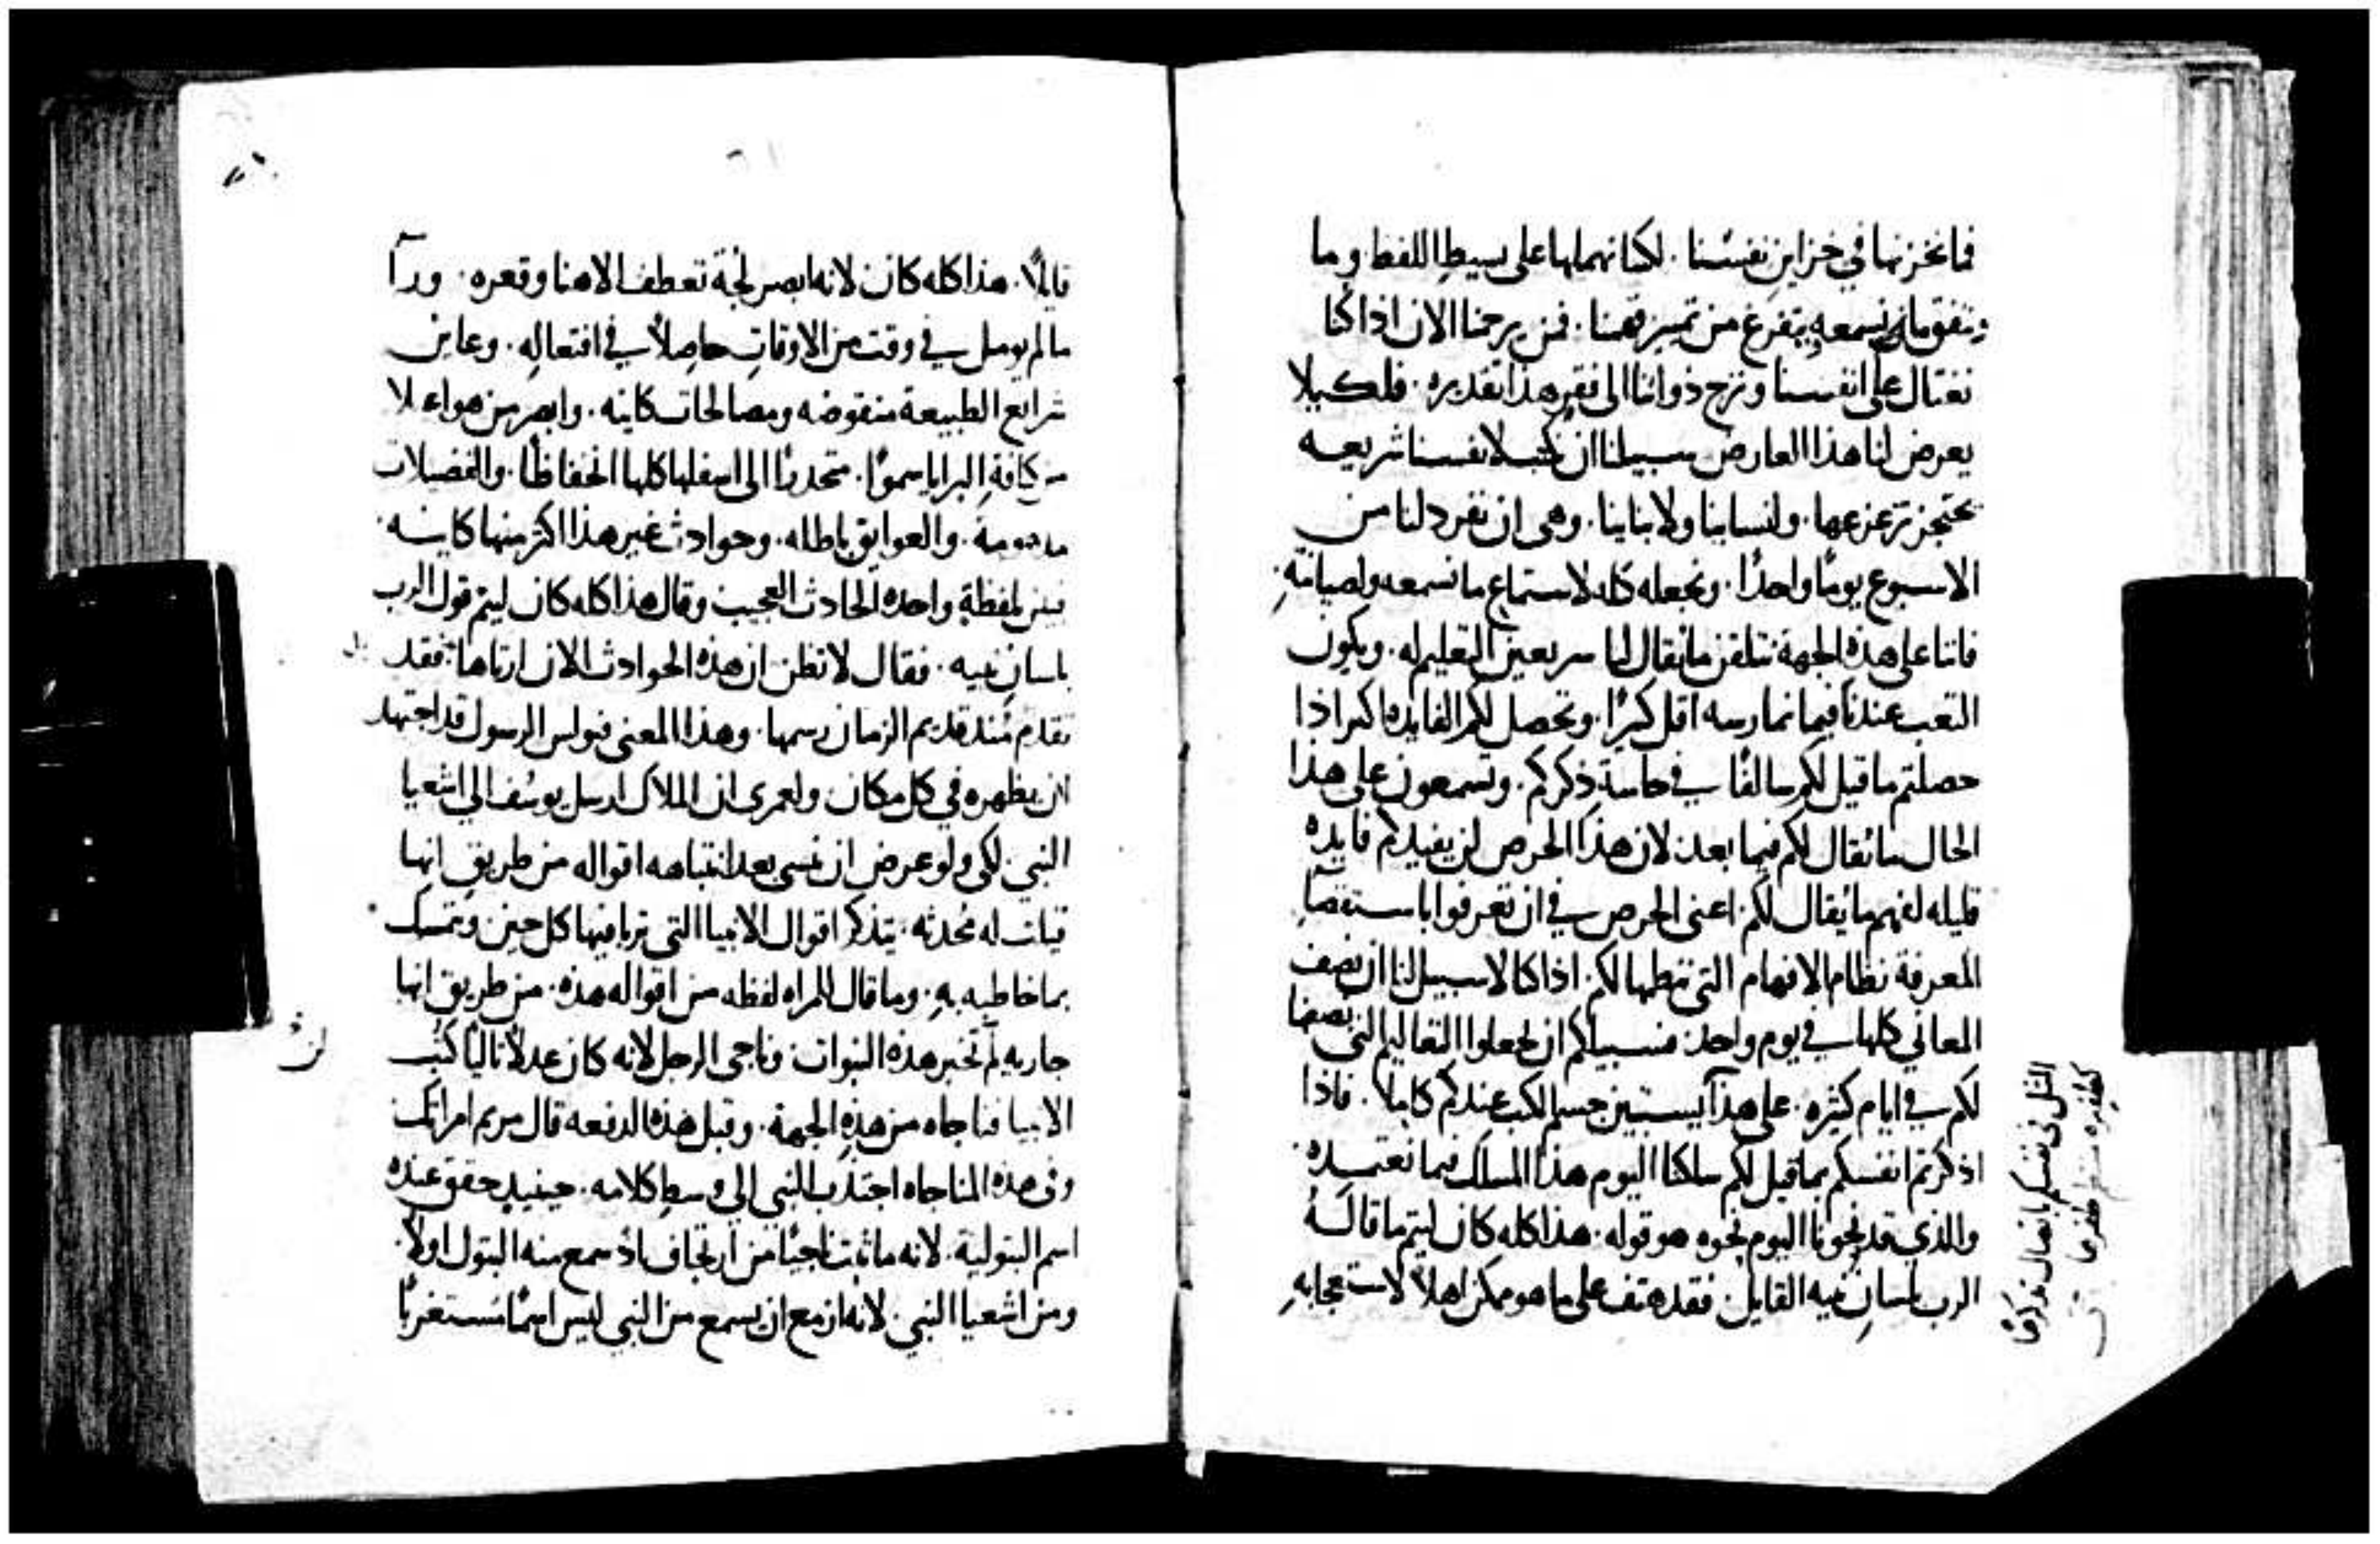 فما نخزنها في خزاين نفسنا. لكنا نهملها على بسيط اللفظ وما
نسمعه يتفرغ من تمييز فهمنا. فمن يرحمنا الان اذا كنا
نغتال على انفسنا ونزج ذواتنا الى فقر هذا تقديره. فلكيلا
يعرض لنا هذا العارض سبيلنا ان نكتب لانفسنا شريعه
يحتجز تزعزعها. ولنساينا ولابناينا. وهي ان نفرد لنا من
الاسبوع يومًا واحدًا. ونجعله كله لاستماع ما نسمعه ولصيانته
فاننا على هذه الجهة نتلقن ما يقال لنا سريعين التعليم له. ويكون
التعب عندنا فيما نمارسه اقل كثيرًا. وتحصل لكم الفايده اكبر اذا
حصلتم ما قيل لكم سالفًا في حاسة ذكركم. وتسمعون على هذا
الحال ما يقال لكم فيما بعد. لان هذا الحرص لن يفيدكم فايده
قليله لفهم ما يقال لكم. اعنى الحرص في ان تعرفوا باستقصاء
المعرفة نظام الافهام التي ننظمها لكم. اذا كنا لا سبيل لنا ان نصف
المعاني كلها في يوم واحد. فسبيلكم ان تجعلوا التعاليم التي نصفها
لكم في ايام كثيره. على هذا يستبين جسم الكتب عندكم كاملاً. فاذا
اذكرتم انفسكم بما قيل لكم سلكنا اليوم هذا المسلك فيما نعتمده.
والذي قد نحونا اليوم نحوه هو قوله. هذا كله كان ليتم ما قاله
الرب بلسان نبيه القايل. فقد هتف على ما هو ممكن اهلاً لاستعجابه
في نفسكم باتصال
قايلاً. هذا كله كان لانه ابصر لجة تعطف الاهنا وقعره. وراآ
ما لم يومل في وقت من الاوقات حاصلاً في افتعاله. وعاين
شرايع الطبيعة منقوضه ومصالحات كاينه. وابصر من هو اعلا
من كافة البرايا سموًا. متحدرًا الى اسفلها كلها انخفاظًا. والفضيلات
مدمومة. والعوايق باطله. وحوادث غير هذا اكثر منها كاينه.
فبين بلفظة واحده الحادث العجيب وقال هذا كله كان ليتم قول الرب
بلسان نبيه. فقال لا تظن ان هذه الحوادث الان ارتاها. فقد
تقدم منذ قديم الزمان رسمها. وهذا المعنى فبولس الرسول قد اجتهد
ان يظهره في كل مكان ولعمري ان الملاك ارسل يوسف الى اشعيا
النبي. لكي ولو عرض ان نسى بعد انتباهه اقواله من طريق انها
قيلت له محدثه. يتذكر اقوال الانبيا التي تربا فيها كل حين ويتمسك
بما خاطبه به. وما قال للمراه لفظه من اقواله هذه. من طريق انها
جاريه لم تخبر هذه النبوات وناجى الرجل لانه كان عدلاً تاليًا كتب
الانبيا فناجاه من هذه الجهة. وقبل هذه الدفعه قال مريم امراتك
وفي هذه المناجاه اجتذب النبي الى وسط كلامه. حينيد حقق عنده
اسم البتولية. لانه ما ثبت ناجيًا من ارتجاف اذ سمع منه البتول اولاً.
ومن اشعيا النبي. لانه ازمع ان يسمع من النبي ليس اسمًا مستغربًا